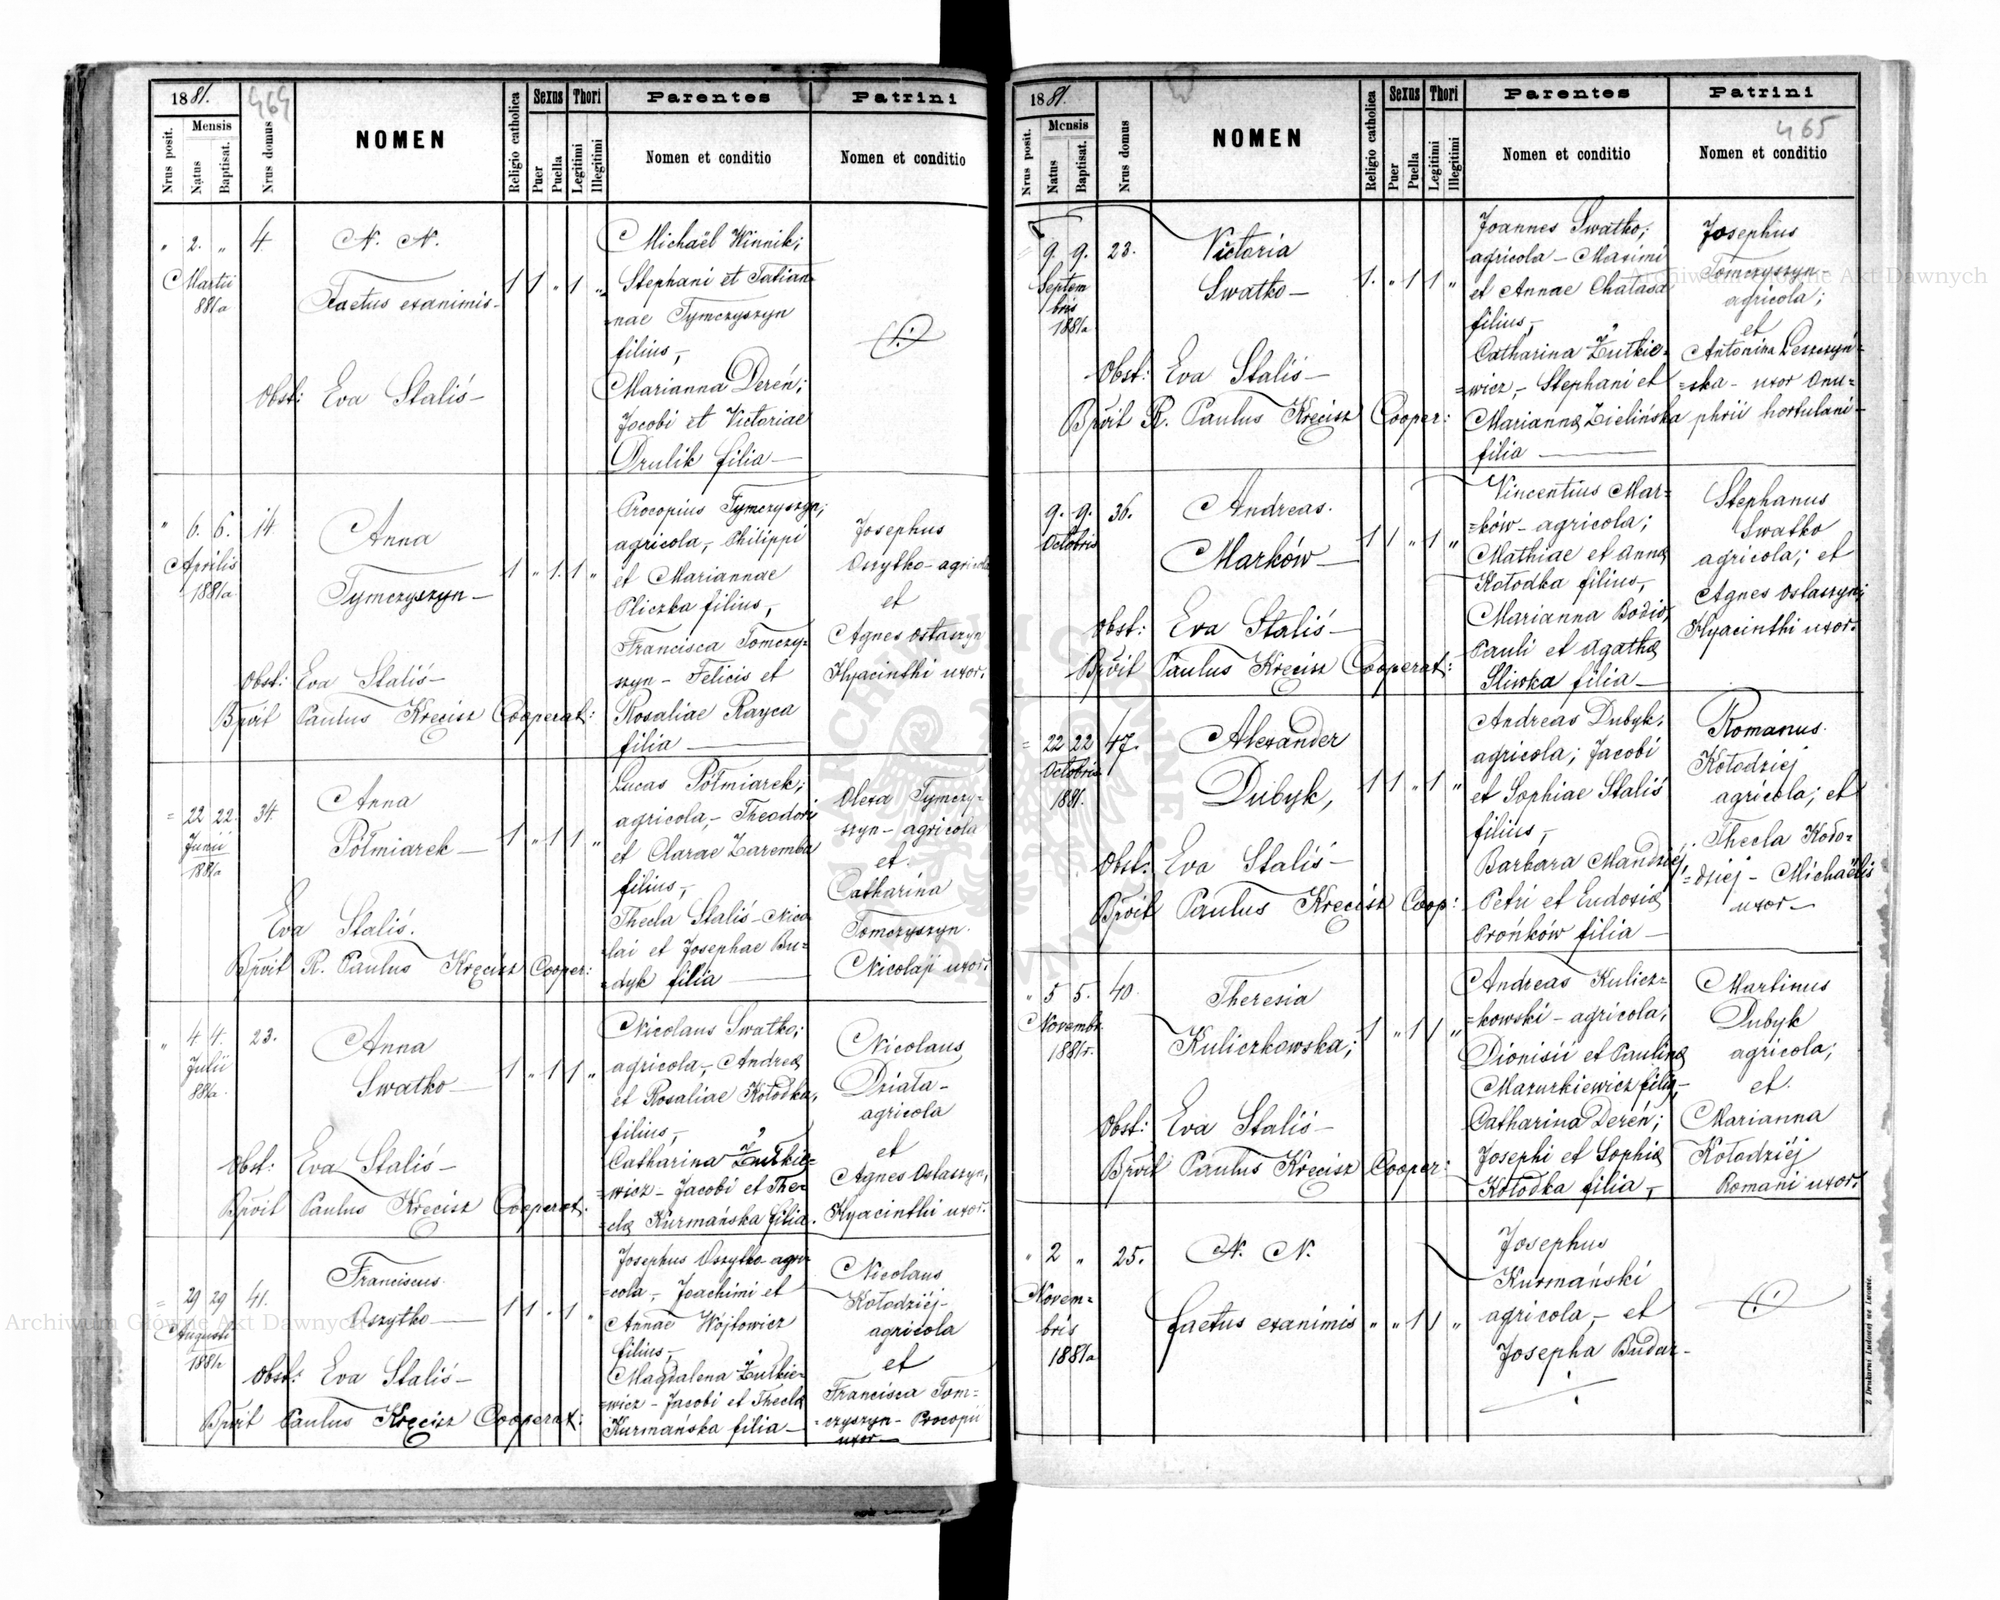 1881.
464
Mensis
Nrus posit.
Natus
Baptisat.
Nrus domus
NOMEN
Religio catholica
Sexus
Puer
Puella
Thori
Legitimi
Illegitimi
Parentes
Nomen et conditio
Patrini
Nomen et conditio
" 2. " 4.
Martii
881a
N. N.
Faetus exanimis-
1 1 " 1 "
Obst: Eva Staliś-
Michaël Winnik;
Stephani et Tatian-
=nae Tymczyszyn
filius,-
Marianna Dereń;
Jacobi et Victoriae
Drulik filia-
" 6. 6. 14.
Aprilis
1881a
Anna
Tymczyszyn-
1 " 1. 1 "
Obst: Eva Staliś-
Bpvit Paulus Kręcisz Cooperat:
Procopius Tymczyszyn;
agricola,- Philippi
et Mariannae
Pliczka filius,
Francisca Tomczy-
szyn- Felicis et
Rosaliae Rayca
filia-
Josephus
Oszytko- agricola
et
Agnes Ostaszyn
Hyacinthi uxor.
= 22 22. 34.
Junii
1881a
Anna
Półmiarek-
1 " 1 1 "
Eva Staliś.
Bpvit R. Paulus Kręcisz Cooper:
Lucas Półmiarek;
agricola,- Theodori
et Clarae Zaremba
filius,-
Thecla Staliś- Nico-
=lai et Josephae Bu=
=dyk filia
Olexa Tymczy-
szyn- agricola
et.
Catharina
Tomczyszyn.
Nicolaji uxor.
" 4 4. 23.
Julii
881a.
Anna
Swatko-
1 " 1 1 "
Obst: Eva Staliś-
Bpvit Paulus Kręcisz Cooperat.
Nicolaus Swatko;
agricola,- Andreæ
et Rosaliae Kołodka,
filius,-
Catharina Żutkie=
=wicz- Jacobi et The-
=clæ Kurmańska filia.
Nicolaus
Działa-
agricola
et
Agnes Ostaszyn,
Hyacinthi uxor.
= 29 29 41.
Augusti
1881a
Franciscus
Oszytko-
1 1 " 1 "
Obst: Eva Staliś-
Bpvit Paulus Kręcisz Cooperat:
Josephus Oszytko- agri=
=cola- Joachimi et
Annae Wójtowicz
filius,-
Magdalena Żutkie=
=wicz- Jacobi et Theclæ
Kurmańska filia-
Nicolaus
Kołodziéj-
agricola
et
Francisca Tom=
=czyszyn- Procopii
uxor-
1881.
465
Mensis
Nrus posit.
Natus
Baptisat.
Nrus domus
NOMEN
Religio catholica
Sexus
Puer
Puella
Thori
Legitimi
Illegitimi
Parentes
Nomen et conditio
Patrini
Nomen et conditio
9. 9. 23.
Septem
bris
1881a
Victoria
Swatko-
1. " 1 1 "
Obst: Eva Staliś-
Bpvit R. Paulus Kręcisz Cooper:
Joannes Swatko;
agricola- Maximi
et Annae Chałasa
filius,-
Catharina Żutkie-
=wicz,- Stephani et
Mariannæ Zielińska
filia
Josephus
Tomczyszyn
agricola;
et
Antonina Leszczyń=
=ska- uxor Onu=
phrii hortulani-
9. 9. 36.
Octobris
Andreas.
Marków-
1 1 " 1 "
Obst: Eva Staliś-
Bpvit Paulus Kręcisz Cooperat:
Vincentius Mar=
=ków- agricola;
Mathiae et Annæ
Kołodka filius,-
Marianna Bodio,
Pauli et Agathæ
Sliwka filia-
Stephanus
Swatko
agricola; et
Agnes Ostaszyn;
Hyacinthi uxor.
= 22 22 47.
Octobris
1881.
Alexander
Dubyk,
1 1 " 1 "
Obst: Eva Staliś-
Bpvit Paulus Kręcisz Coop:
Andreas Dubyk,
agricola; Jacobi
et Sophiae Staliś
filius,-
Barbara Mandziéj,
Petri et Eudoxiæ
Prońków filia-
Romanus.
Kołodziéj
agricola; et
Thecla Koło-
=dziéj- Michaëlis
uxor-
" 5 5. 40.
Novembr.
1881r.
Theresia
Kuliczkowska;
1 " 1 1 "
Obst: Eva Staliś-
Bpvit Paulus Kręcisz Cooper:
Andreas Kulicz=
=kowski- agricola;
Dionisii et Paulinæ
Mazurkiewicz filia,-
Catharina Dereń;
Josephi et Sophiæ
Kołodka filia,-
Martinus
Dubyk
agricola;
et.
Marianna
Kołodziéj
Romani uxor.
" 2 " 25.
Novem=
bris
1881a
N. N.
faetus exanimis
" " 1 1 "
Josephus
Kurmański
agricola,- et
Josepha Budar-
Z Drukarni Ludowej we Lwowie.
Archiwum Główne Akt Dawnych
Archiwum Główne Akt Dawnych
ARCHIWUM GŁÓWNE AKT DAWNYCH